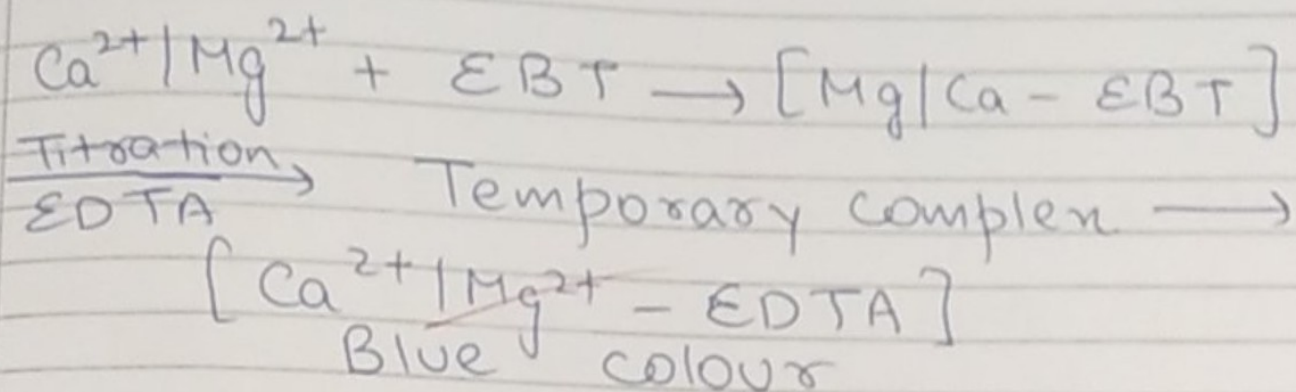 Ca²⁺/Mg²⁺ + EBT → [Mg/Ca - EBT]
Titration
EDTA → Temporary complex →
[Ca²⁺/Mg²⁺ - EDTA]
Blue colour